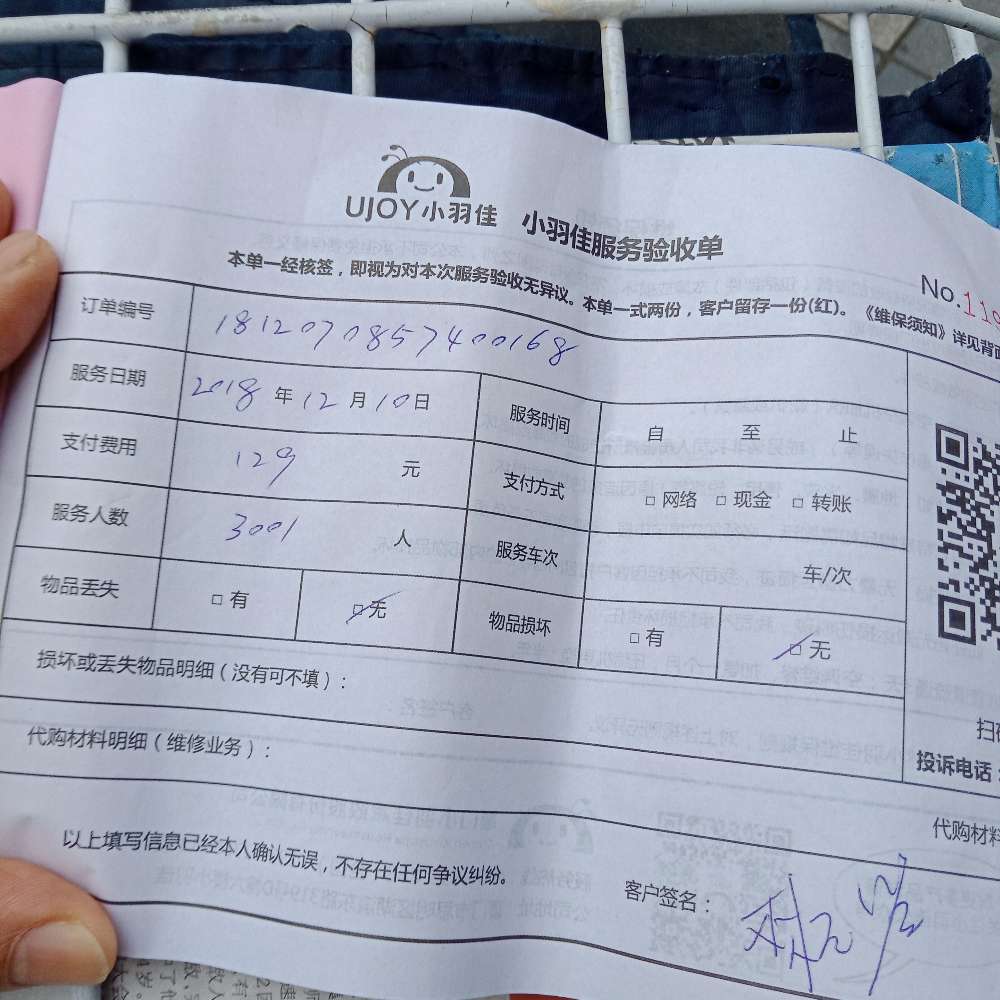 UJOY小羽佳 小羽佳服务验收单
本单一经核签，即视为对本次服务验收无异议。本单一式两份，客户留存一份(红)。《维保须知》详见背面
No.11
订单编号 181207085740168
服务日期 2018 年 12 月 10 日 服务时间 自 至 止
支付费用 129 元 支付方式 □ 网络 □ 现金 □ 转账
服务人数 3001 人 服务车次 车/次
物品丢失 □ 有 □ 无 物品损坏 □ 有 □ 无
损坏或丢失物品明细（没有可不填）：
扫
代购材料明细（维修业务）：
投诉电话：
代购材料
以上填写信息已经本人确认无误，不存在任何争议纠纷。
客户签名：